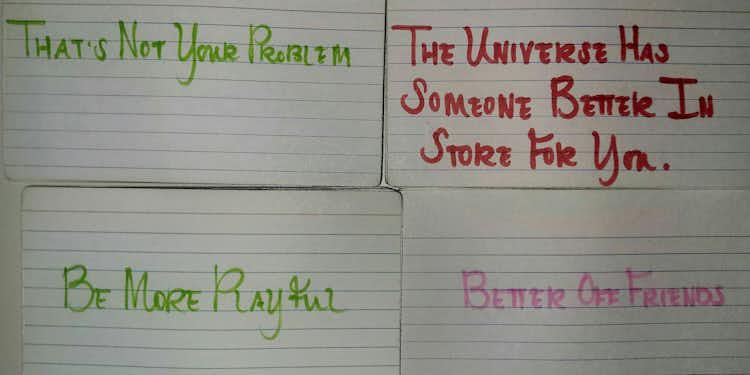 That's Not Your Problem
The Universe Has
Someone Better In
Store For You.
Be More Playful
Better Off Friends